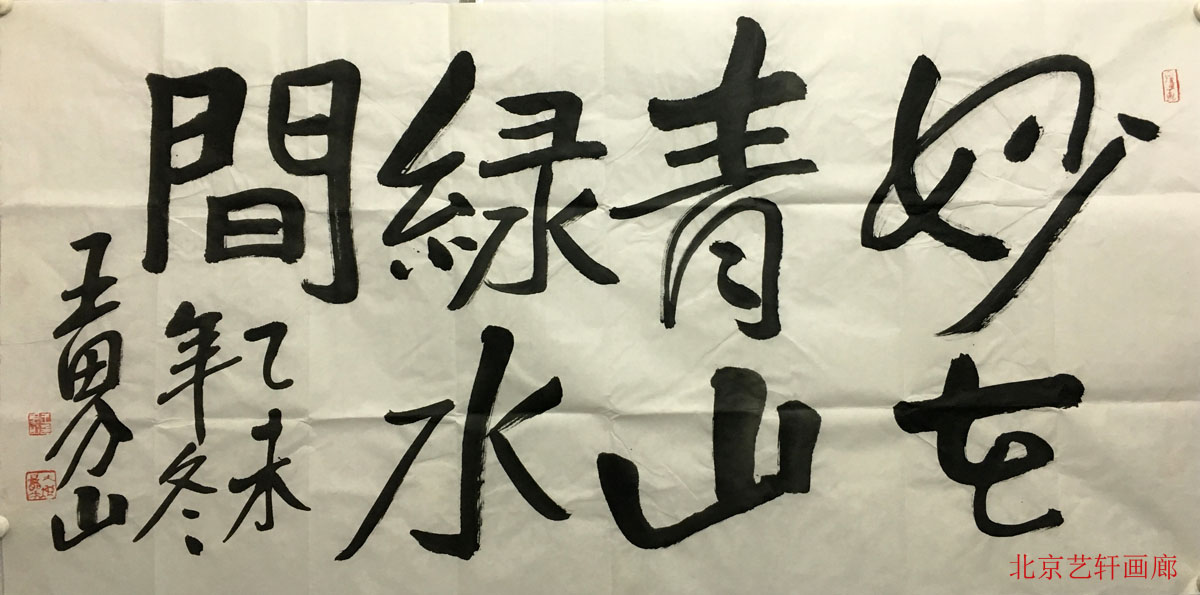 妙在
青山
緑水
間
乙未
年冬
王男山
北京艺轩画廊